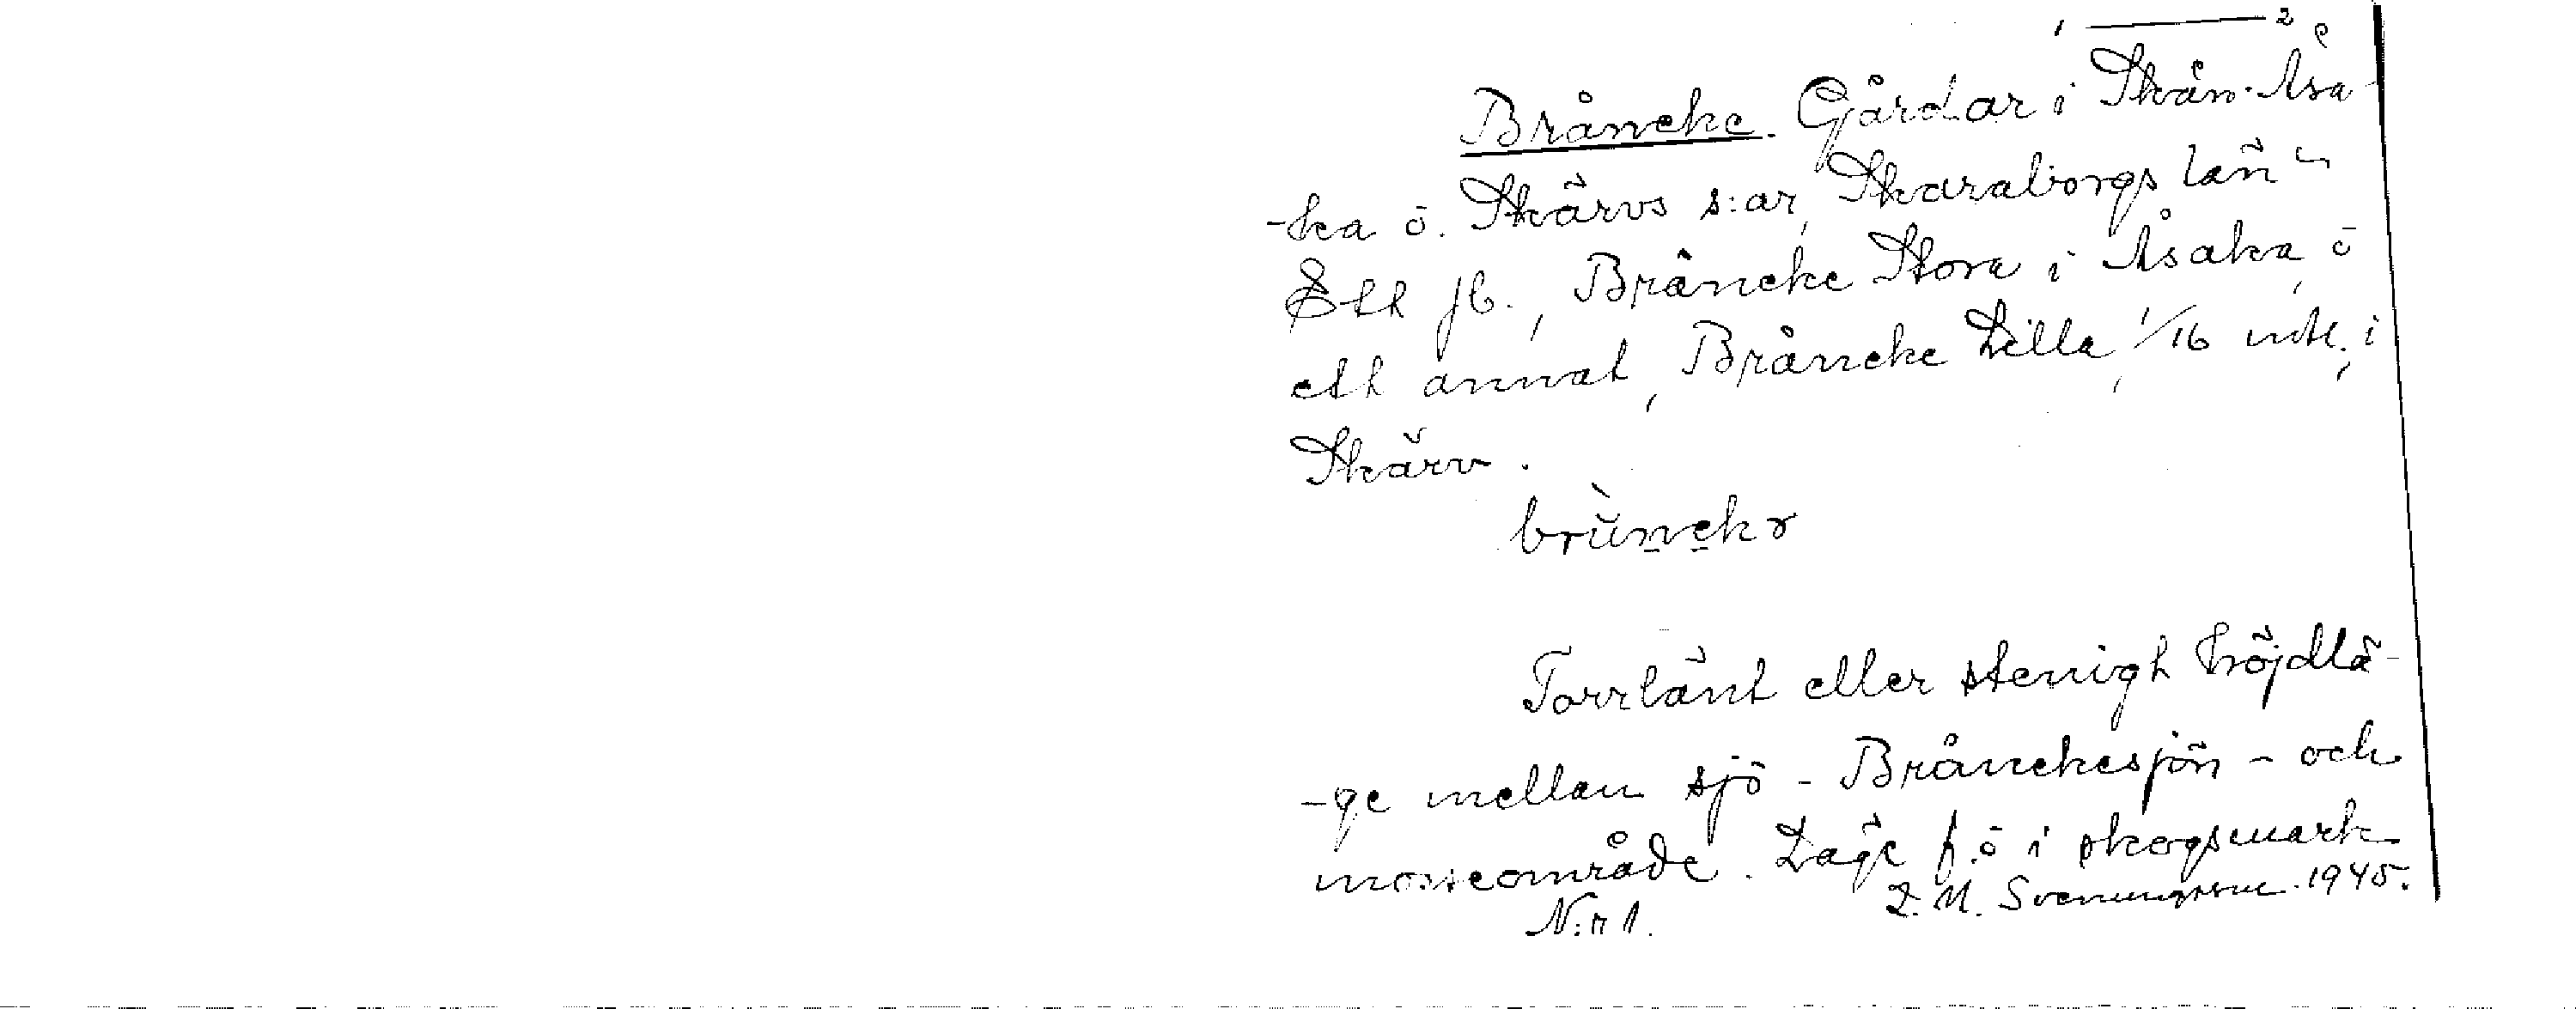 1 — 2
Bråneke. Gårdar i Skån-Åsa-
-ka o. Skärvs s:ar, Skaraborgs län.
Ett jb., Bråneke Stora i Åsaka, o
ett annat, Bråneke Lilla, 1/16 mtl., i
Skärv.
Torrlänt eller stenigt höjdlä-
-ge mellan sjö - Brånekesjön - och
mosseområde. Läge f. ö i skogsmark
N:r 1. Svenungsson 1945.